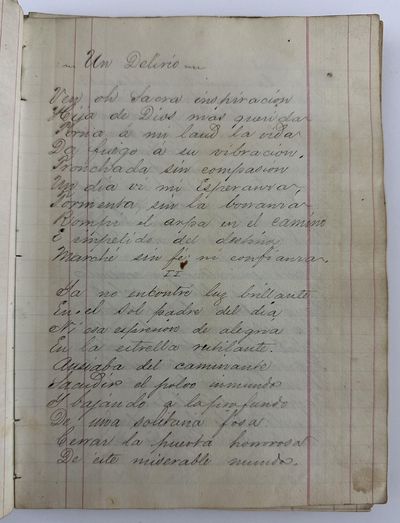 Un Delirio
Ven oh Sacra inspiración
Hija de Dios más querida
Torna á mi laud la vida
Da fuego á su vibración.
Tronchada sin compasión
Un día vi mi Esperanza,
Tormenta sin la bonanza
Rompí el arpa en el camino
E impelido del destino
Marché sin fé ni confianza.
II
Ya no encontré luz brillante
En el Sol padre del día
Ni esa espresion de alegria
En la estrella rutilante.
Ansiaba del caminante
Sacudir el polvo inmundo
Y bajando á lo profundo
De una solitaria fosa
Cerrar la puerta horrorosa
De este miserable mundo.